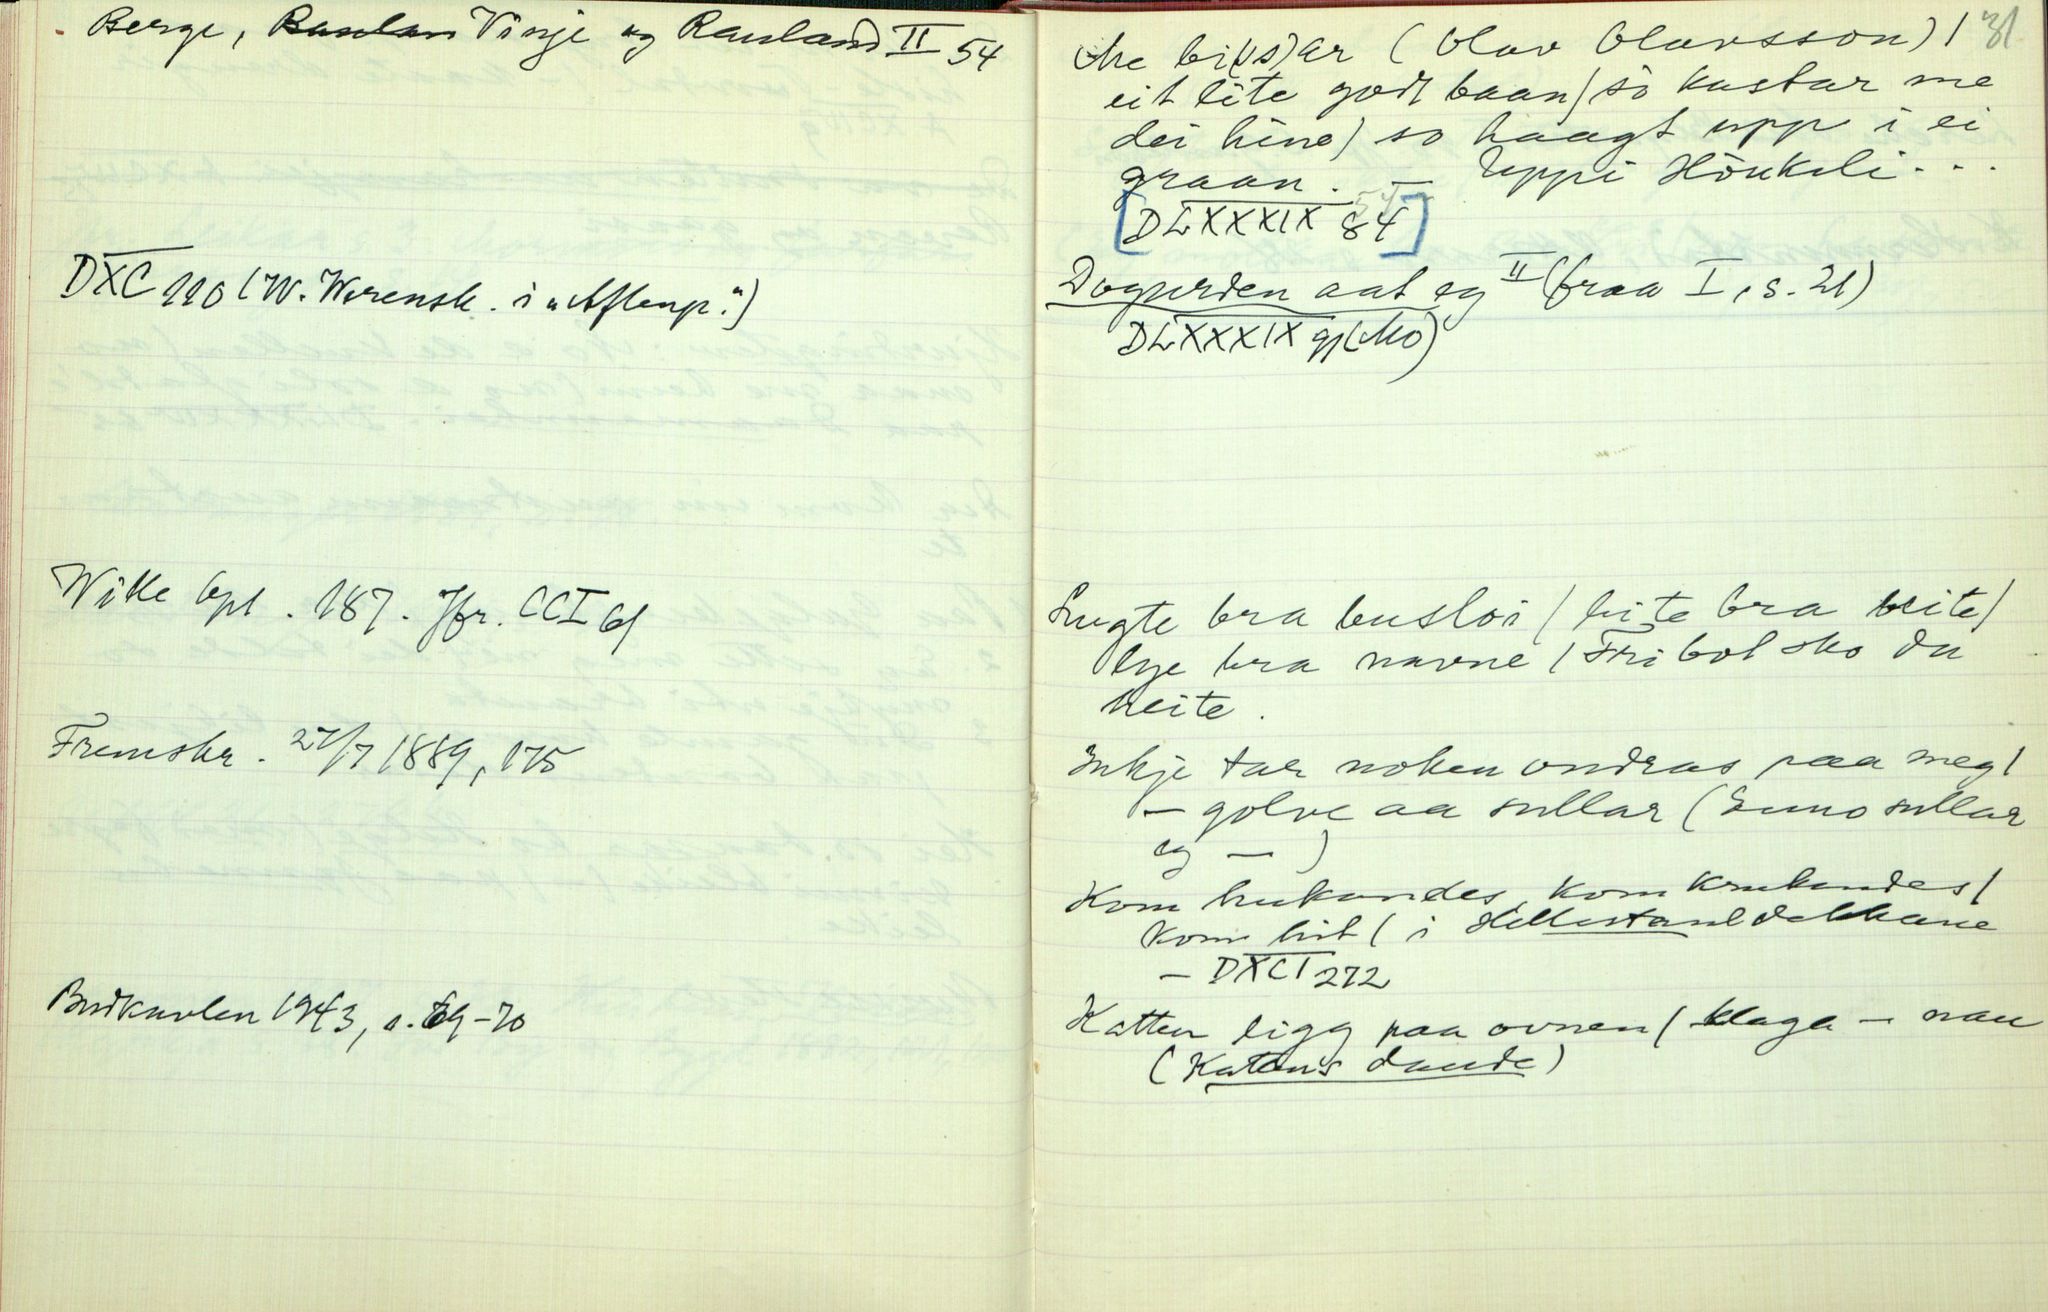 Berge, Raulan Vinje og Rauland II 54
DXC 220 (W. Werensk. i "Aftenp.")
Wille 187. Jfr. CCI 61
Fremskr. 27/7 1889, 175
Budkavlen 1943, s. 69-70
31
Me bi(s)ar (Olav Olavsson) /
eit lite godt baan / so kastar me
dei hine / so haagt upp i ei
graan. — Uppi Höukeli...
[DLXXXIX 84] 54
Dogurden aat eg II (fraa I, s. 21)
DLXXXIX 91 (Mo)
Lugte bra busloi / bite bra beite /
lye bra navne / Fribol sko du
heite.
Inkje tar noken undras paa meg /
— golve aa sullar (Suno sullar
eg —)
Kom hukandes, kom krukandes /
kom hit / i Hellestauldokkane
— DXCI 272
Katten ligg paa ovnen / klaga — nau
(Katens daude)